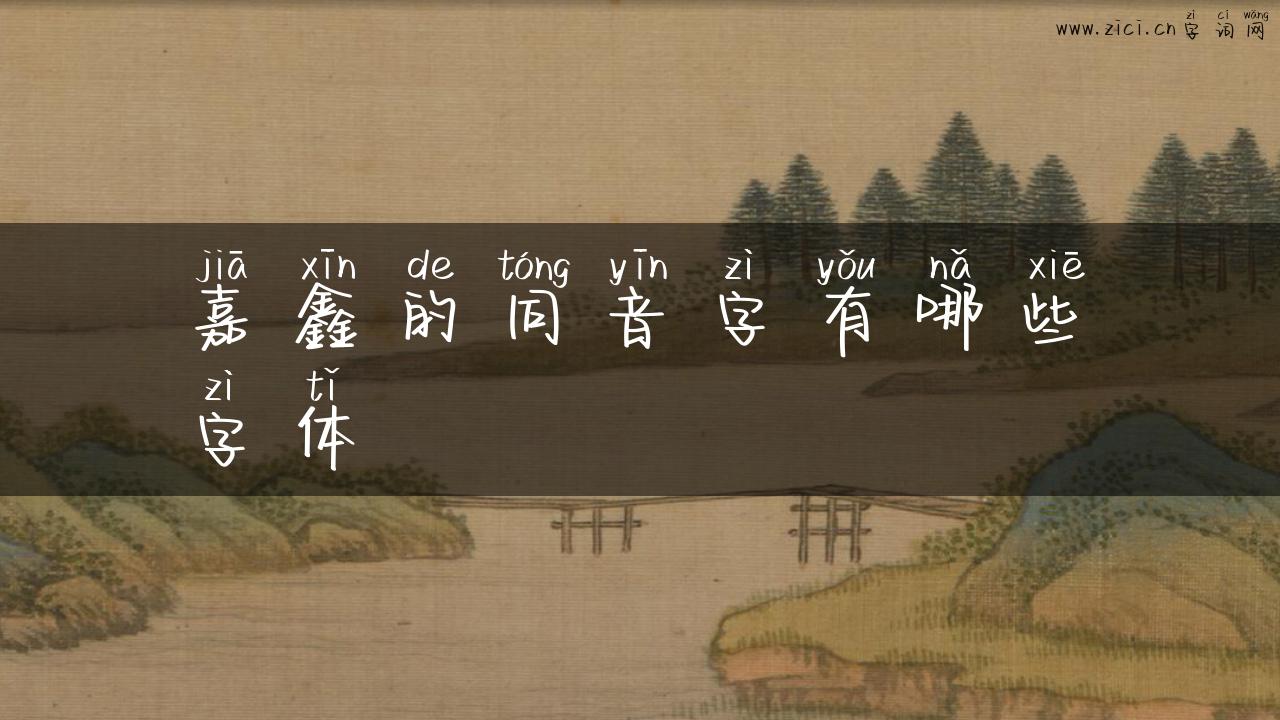 zì cí wǎng
www.zici.cn 字词网
jiā xīn de tóng yīn zì yǒu nǎ xiē
嘉鑫的同音字有哪些
zì tǐ
字体